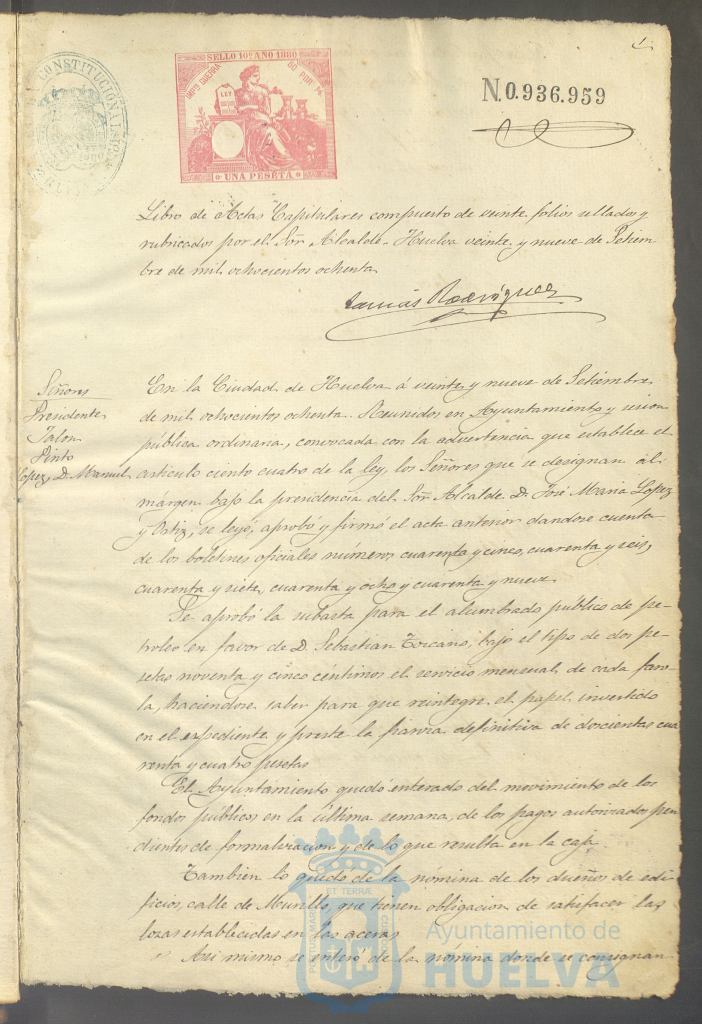 1
CONSTITUCIONAL
SELLO 10º AÑO 1880
IMPTO GUERRA
50 POR %
LEY
UNA PESETA
N.0.936.959
Libro de Actas Capitulares compuesto de veinte folios sellados y
rubricados por el Señr Alcalde. Huelva veinte y nueve de Setiem-
bre de mil ochocientos ochenta.
Tomás Rodríguez
Señores
Presidente
Talon
Pinto
Lopez, D. Manuel
En la Ciudad de Huelva á veinte y nueve de Setiembre
de mil ochocientos ochenta. Reunidos en Ayuntamiento y sesion
pública ordinaria, convocada con la advertencia que establece el
articulo ciento cuatro de la ley, los Señores que se designan al
márgen bajo la presidencia del Señr Alcalde D. José Maria Lopez
y Ortiz, se leyó, aprobó y firmó el acta anterior dandose cuenta
de los boletines oficiales números cuarenta y cinco, cuarenta y seis,
cuarenta y siete, cuarenta y ocho y cuarenta y nueve.
Se aprobó la subasta para el alumbrado público de pe-
troleo en favor de D. Sebastian Toscano, bajo el tipo de dos pe-
setas noventa y cinco céntimos el servicio mensual de cada faro-
la, haciendose saber para que reintegre el papel invertido
en el expediente y preste la fianza definitiva de doscientas cua
renta y cuatro pesetas
El Ayuntamiento quedó enterado del movimiento de los
fondos públicos en la última semana, de los pagos autorizados pen
dientes de formalizacion y de lo que resulta en la caja.
Tambien lo quedó de la nómina de los dueños de edi-
ficios, calle de Murillo, que tienen obligacion de satisfacer las
lozas establecidas en las aceras
Asi mismo se enteró de la nómina donde se consignan
PORTUS MARIS ET TERRÆ CUSTODIA
Ayuntamiento de
HUELVA